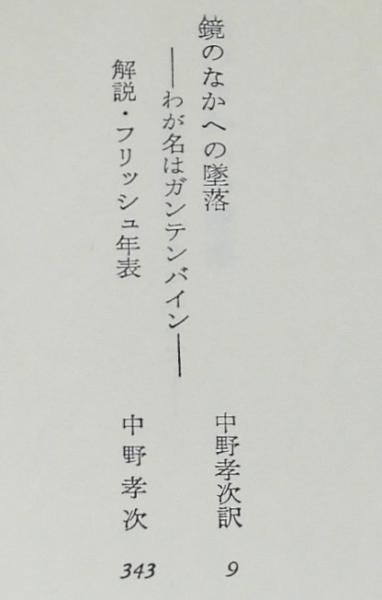 鏡のなかへの墜落
――わが名はガンテンバイン――
中野孝次訳 9
解説・フリッシュ年表 中野孝次 343